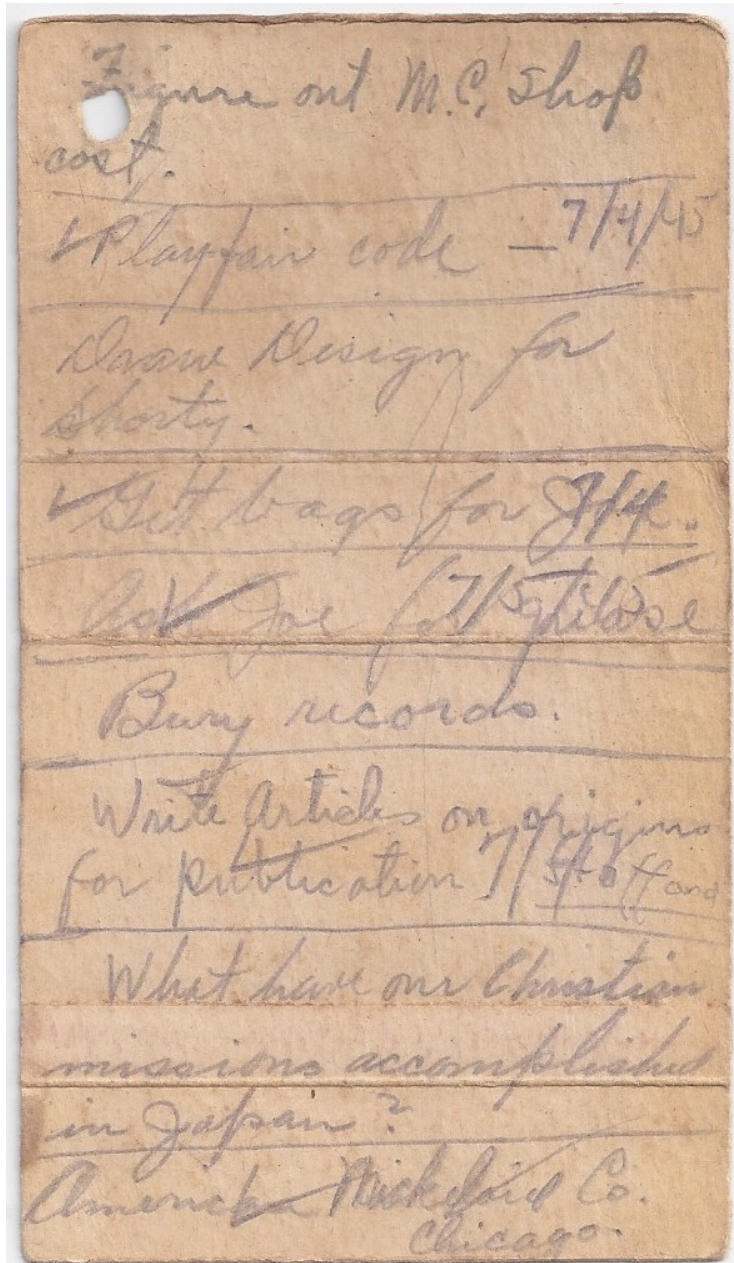 Figure out M.C. shop
cost.
Playfair code — 7/4/45
Draw Design for
Shorty.
Get bags for
Ask Joe for 7/5
Bury records.
Write Articles on origins
for publication
What have our Christian
missions accomplished
in Japan?
Co.
Chicago.